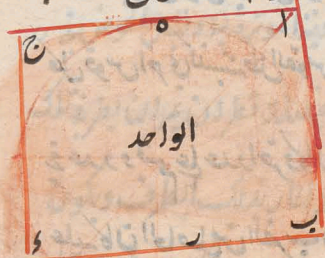 ا ه ج
الواحد
ب ر د